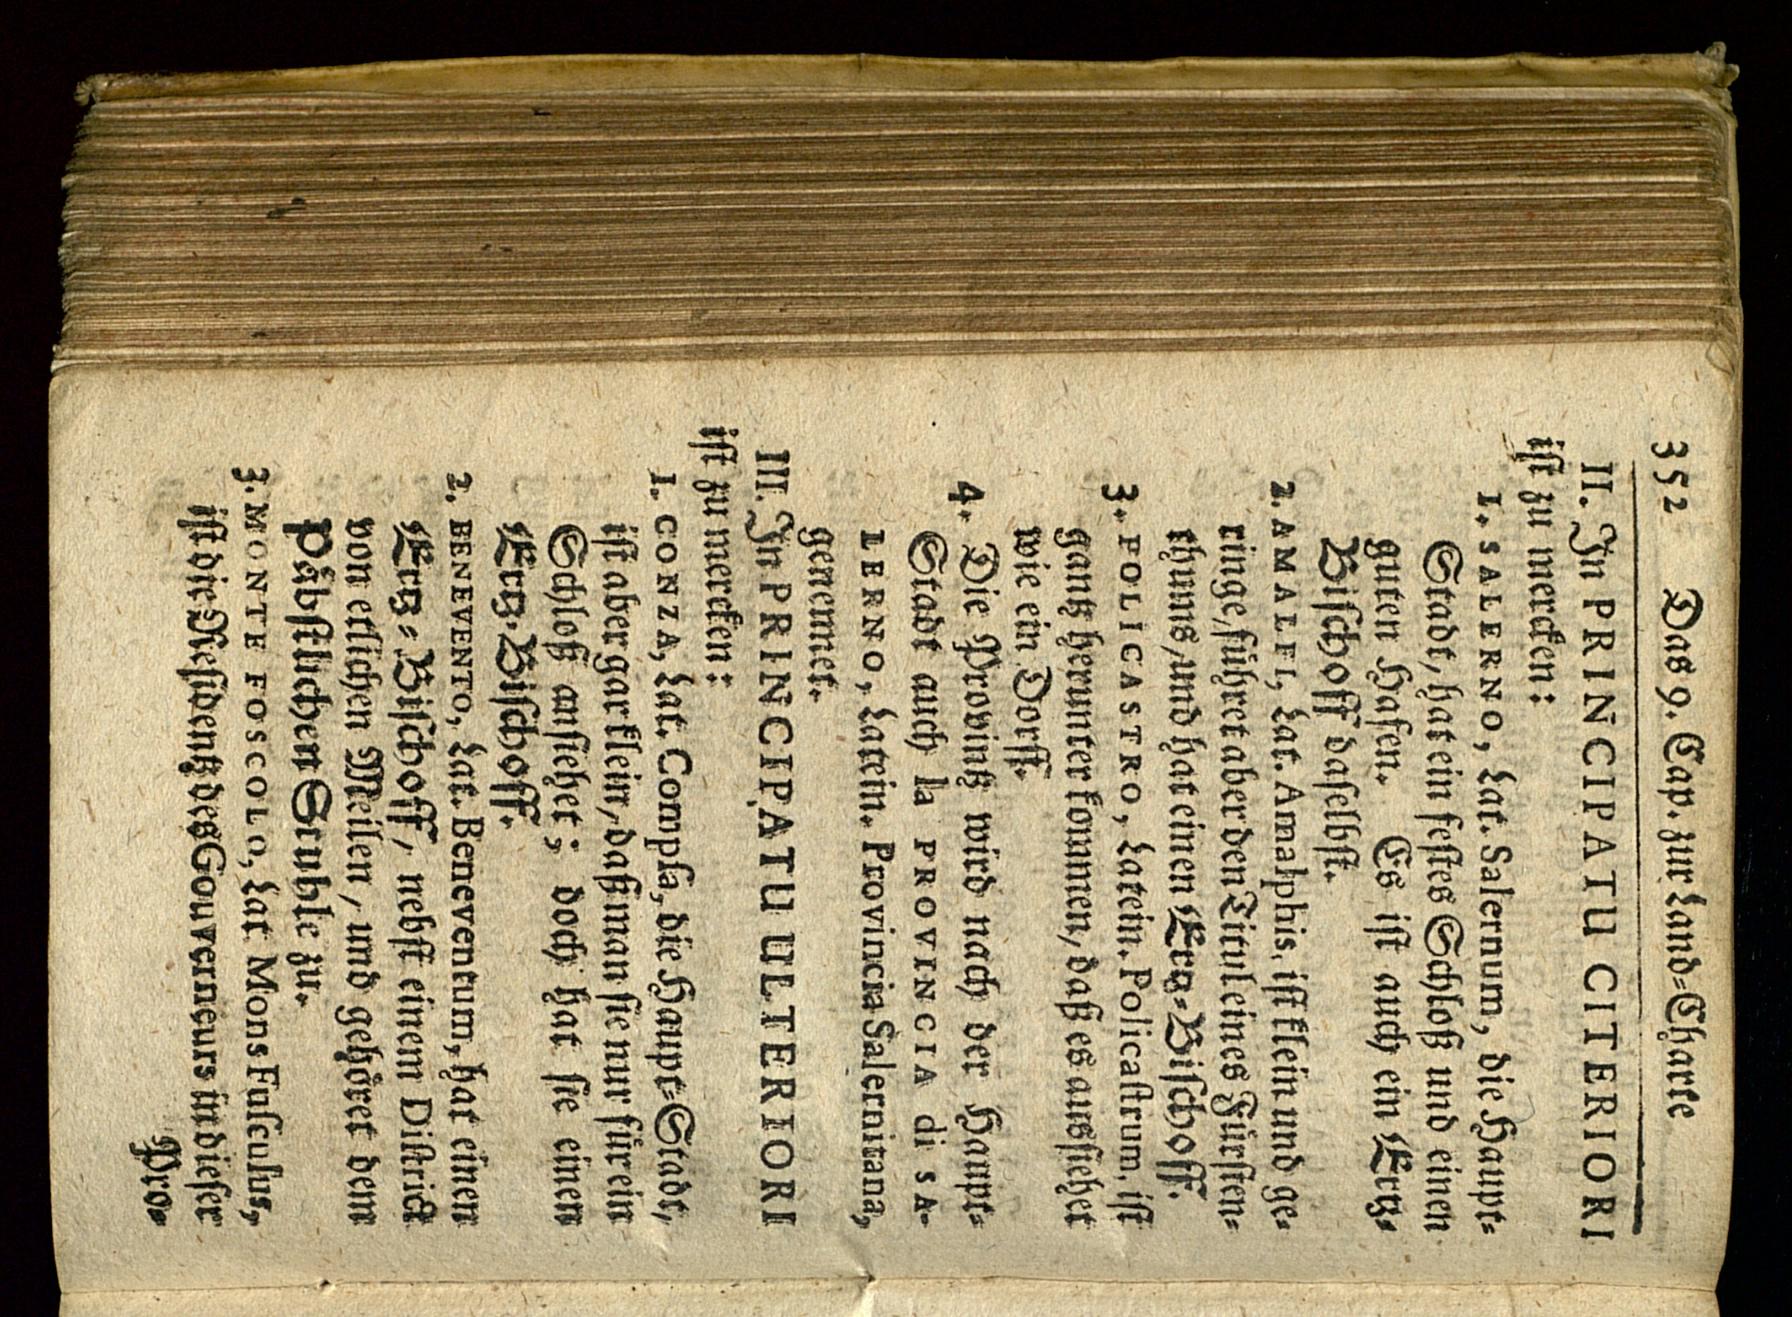 352 Das 9. Cap. zur Land=Charte
II. In PRINCIPATU CITERIORI
ist zu mercken:
1. SALERNO, Lat. Salernum, die Haupt=
Stadt, hat ein festes Schloß und einen
guten Hafen. Es ist auch ein Ertz=
Bischoff daselbst.
2. AMALFI, Lat. Amalphis, ist klein und ge=
ringe, führet aber den Titul eines Fürsten=
thums, und hat einen Ertz=Bischoff.
3. POLICASTRO, Latein. Policastrum, ist
gantz herunter kommen, daß es aussiehet
wie ein Dorff.
4. Die Provintz wird nach der Haupt=
Stadt auch la PROVINCIA di SA-
LERNO, Latein. Provincia Salernitana,
genennet.
III. In PRINCIPATU ULTERIORI
ist zu mercken:
1. CONZA, Lat. Compsa, die Haupt=Stadt,
ist aber gar klein, daß man sie nur für ein
Schloß ansiehet; doch hat sie einen
Ertz-Bischoff.
2. BENEVENTO, Lat. Beneventum, hat einen
Ertz=Bischoff, nebst einem District
von etlichen Meilen, und gehöret dem
Päbstlichen Stuhle zu.
3. MONTE FOSCOLO, Lat Mons Fusculus,
ist die Residentz des Gouverneurs in dieser
Pro=